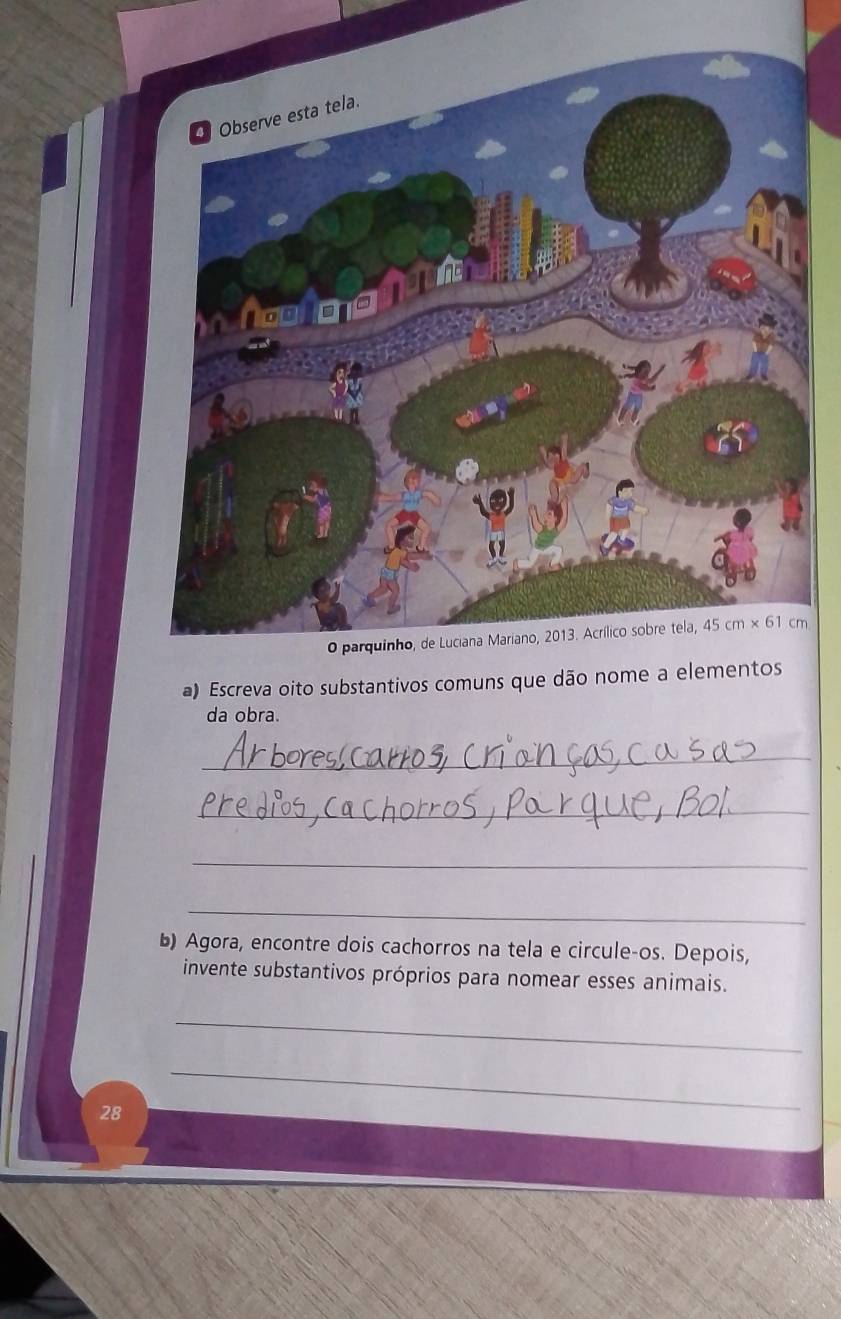 4 Observe esta tela.
O parquinho, de Luciana Mariano, 2013. Acrílico sobre tela, 45 cm × 61 cm.
a) Escreva oito substantivos comuns que dão nome a elementos
da obra.
Arbores, carros, crianças, casas
predios, cachorros, parque, Bol.
b) Agora, encontre dois cachorros na tela e circule-os. Depois,
invente substantivos próprios para nomear esses animais.
28